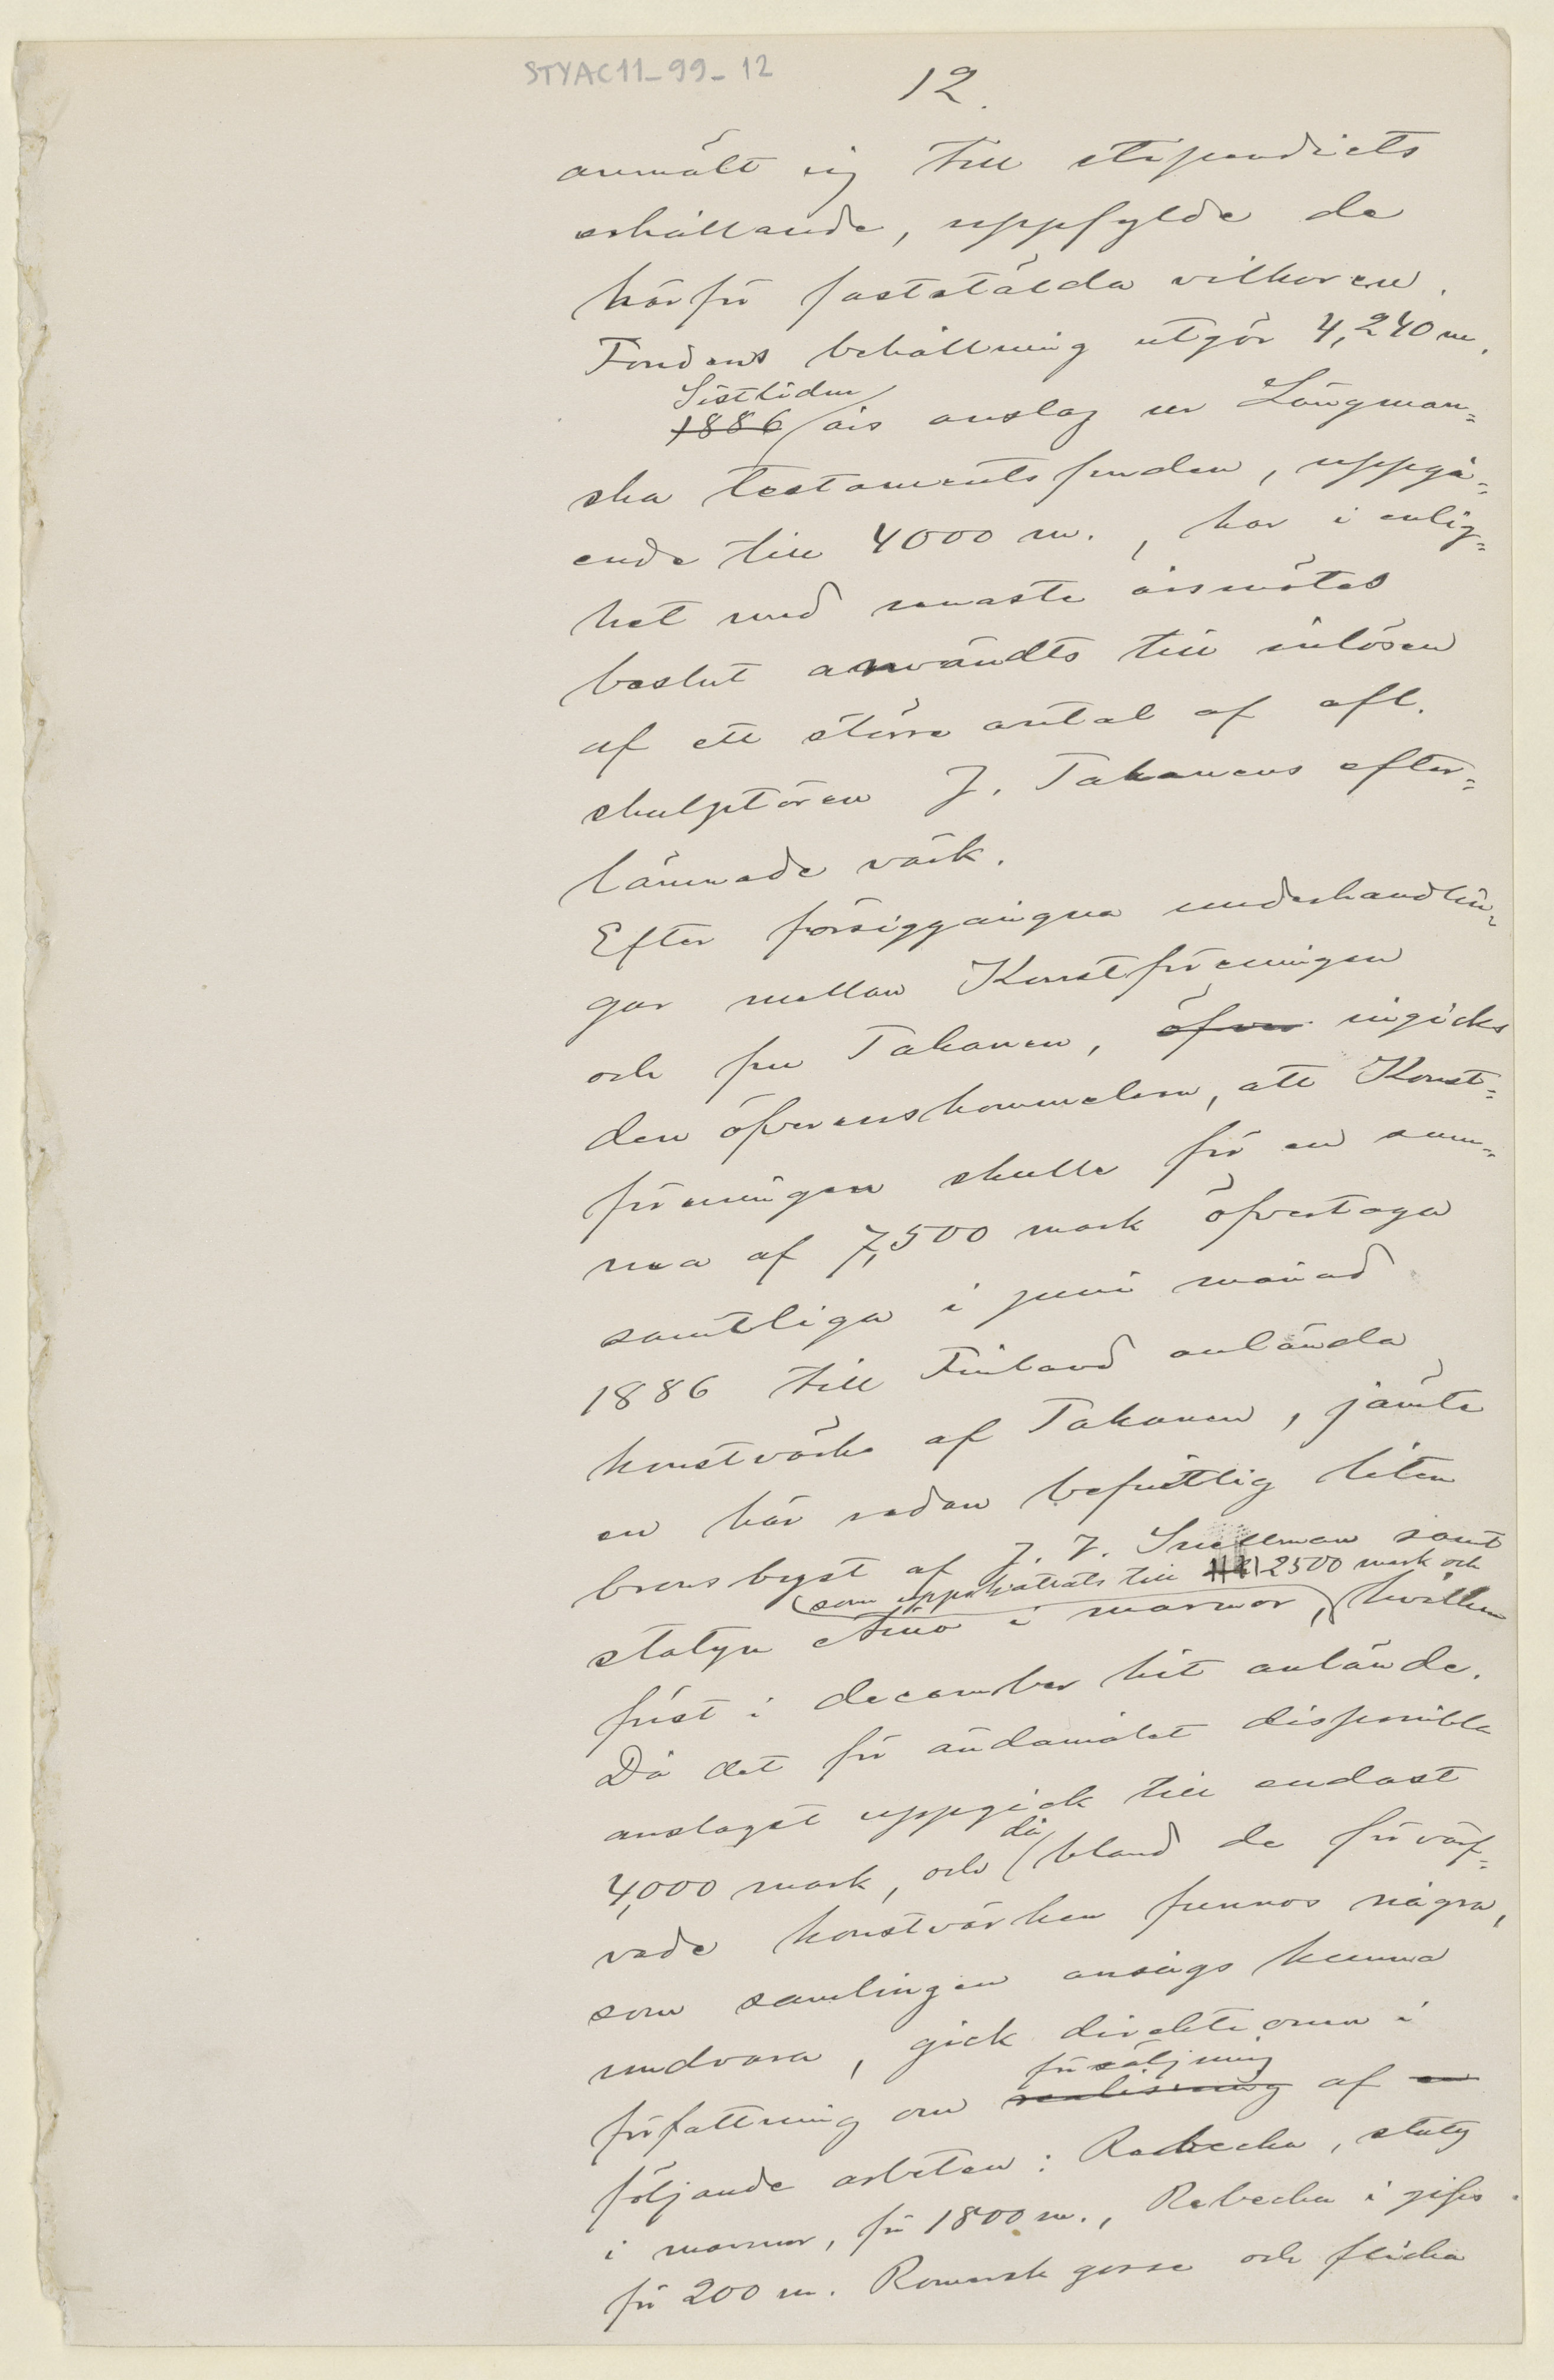 STYAC11_99_12
12.
anmält sig till stipendiets
erhållande, uppfylde de
härför faststälda vilkoren.
Fondens behållning utgör 4,240 m.
Sistlidne
1886 års anslag ur Längman=
ska testamentsfonden, uppgå=
ende till 4000 m., har i enlig=
het med senaste årsmötes
beslut användts till inlösen
af ett större antal af afl.
skulptören J. Takanens efter=
lämnade värk.
Efter försiggångna underhandlin=
gar mellan Konstföreningen
och fru Takanen, öfver ingicks
den öfverenskommelsen, att Konst=
föreningen skulle för en sum=
ma af 7,500 mark öfvertaga
samtliga i juni månad
1886 till Finland anlända
konstvärk af Takanen, jämte
en här redan befintlig liten
bronsbyst af J. V. Snellman samt
som uppskattats till 2500 mark och
statyn Aino i marmor, hvilken
först i december hit anlände.
Då det för ändamålet disponibla
anslaget uppgick till endast
då
4,000 mark, och bland de förvärf=
vade konstvärken funnos några,
som samlingen ansågs kunna
undvara, gick direktionen i
försäljning
författning om realisering af en
följande arbeten: Rebecka, staty
i marmor, för 1800 m., Rebecka i gips
för 200 m. Romersk gosse och flicka